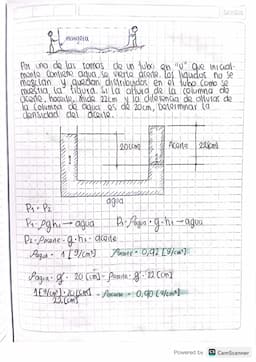 manguera
Por una de las ramas de un tubo en "U" que inicial-
mente contiene agua, se vierte aceite. Los líquidos no se
mezclan y quedan distribuidos en el tubo como se
muestra la figura. Si la altura de la columna de
aceite, haceite, mide 22cm y la diferencia de alturas de
la columna de agua es de 20cm, Determinar la
densidad del aceite.
20[cm] Aceite 22[cm]
agua
P1 = P2
P1 = ρgh1 → agua P1 = ρagua · g · h1 → agua
P2 = ρaceite · g · h2 = aceite
ρagua = 1 [g/cm³] ρaceite = 0,92 [g/cm³]
ρagua · g · 20 [cm] = ρaceite · g · 22 [cm]
1[g/cm³] · 20 [cm] = ρaceite = 0,90 [g/cm³]
22[cm]
Powered by CamScanner